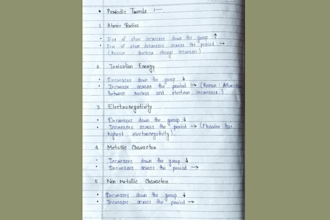 • Periodic Trends :—
1. Atomic Radius
• Size of atom increases down the group ↑
• Size of atom decreases across the period →
(Reason - nuclear charge increases)
2. Ionisation Energy
• Decreases down the group ↓
• Increases across the period → (Reason -
between nucleus and electron increases)
3. Electronegativity
• Decreases down the group ↓
• Increases across the period → (Fluorine has
highest electronegativity)
4. Metallic Character
• Increases down the group ↓
• Decreases across the period →
5. Non Metallic Character
• Decreases down the group ↓
• Increases across the period →